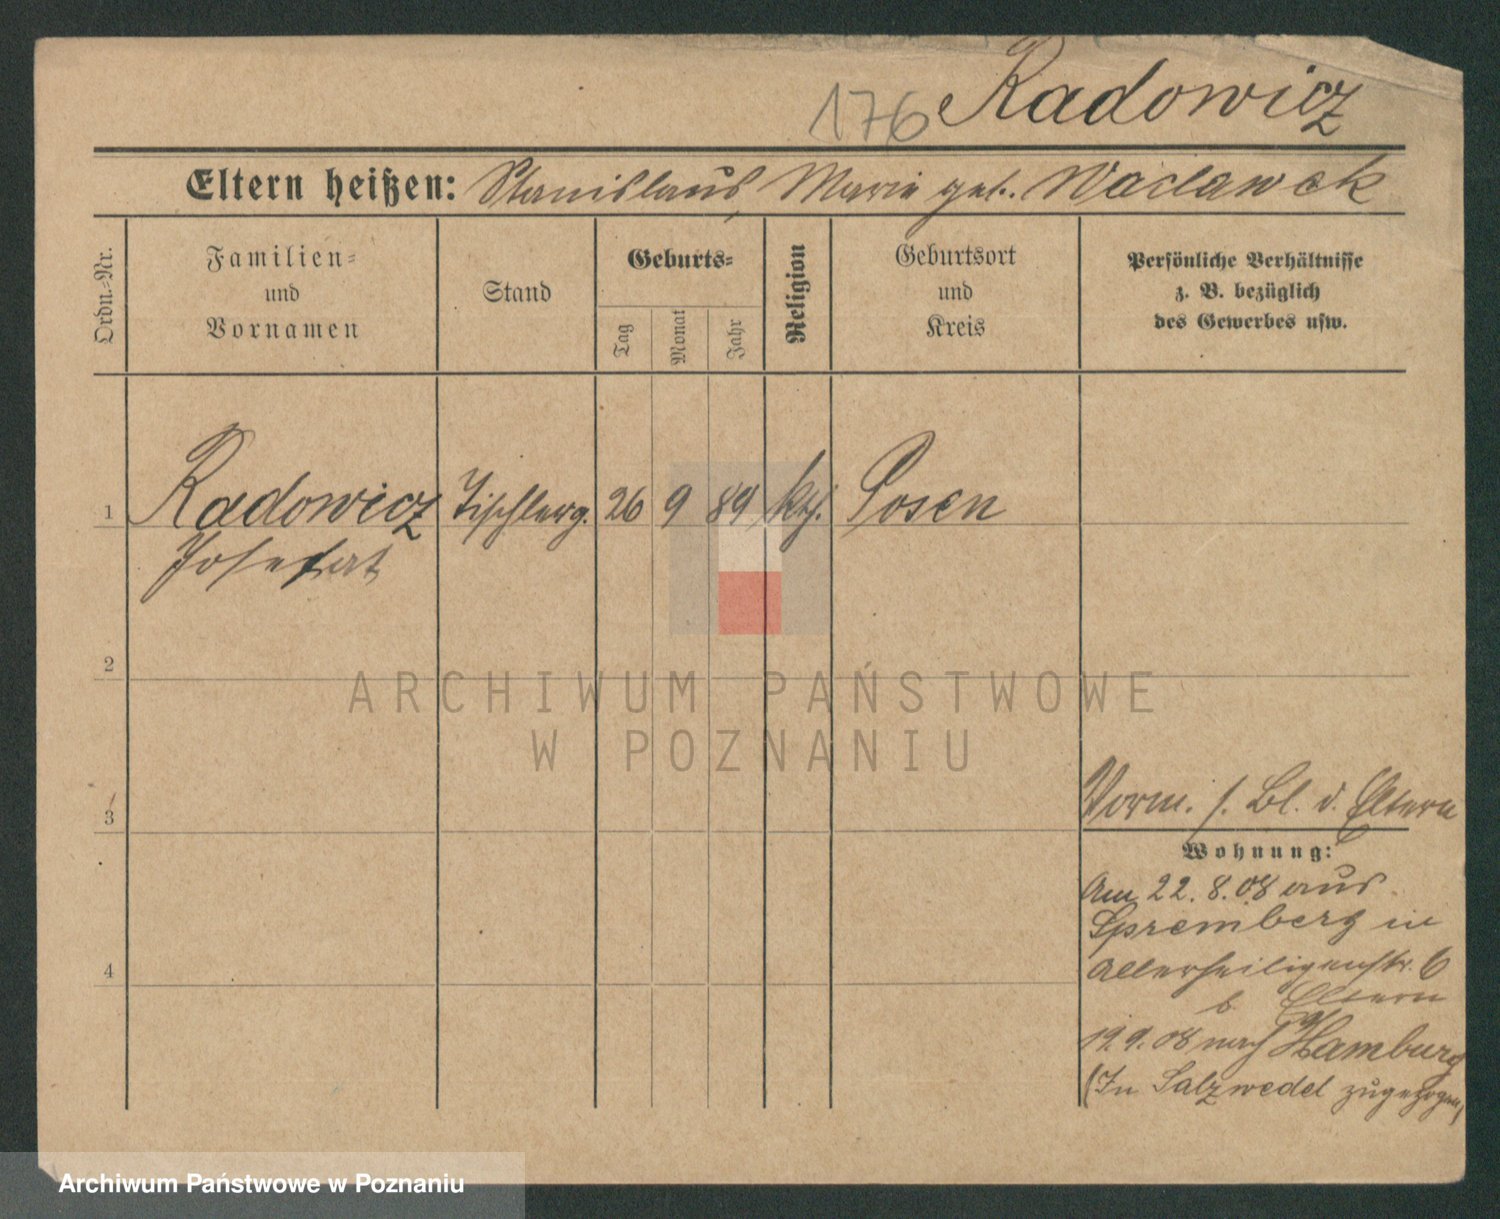 176 Radowicz
Eltern heißen: Stanislaus, Marie geb. Waclawek
Ordn.-Nr.
Familien-
und
Vornamen
Stand
Geburts-
Tag
Monat
Jahr
Religion
Geburtsort
und
Kreis
Persönliche Verhältnisse
z. B. bezüglich
des Gewerbes usw.
1 Radowicz Tischlerg. 26 9 89 kth. Posen
Josefat
2
ARCHIWUM PAŃSTWOWE
W POZNANIU
3
Vorm. s. Bl. d. Eltern
Wohnung:
Am 22.8.08 aus
Spremberg in
Allerheiligenstr. 6
b. Eltern
4
19.9.08 nach Hamburg
(In Salzwedel zugezogen)
Archiwum Państwowe w Poznaniu